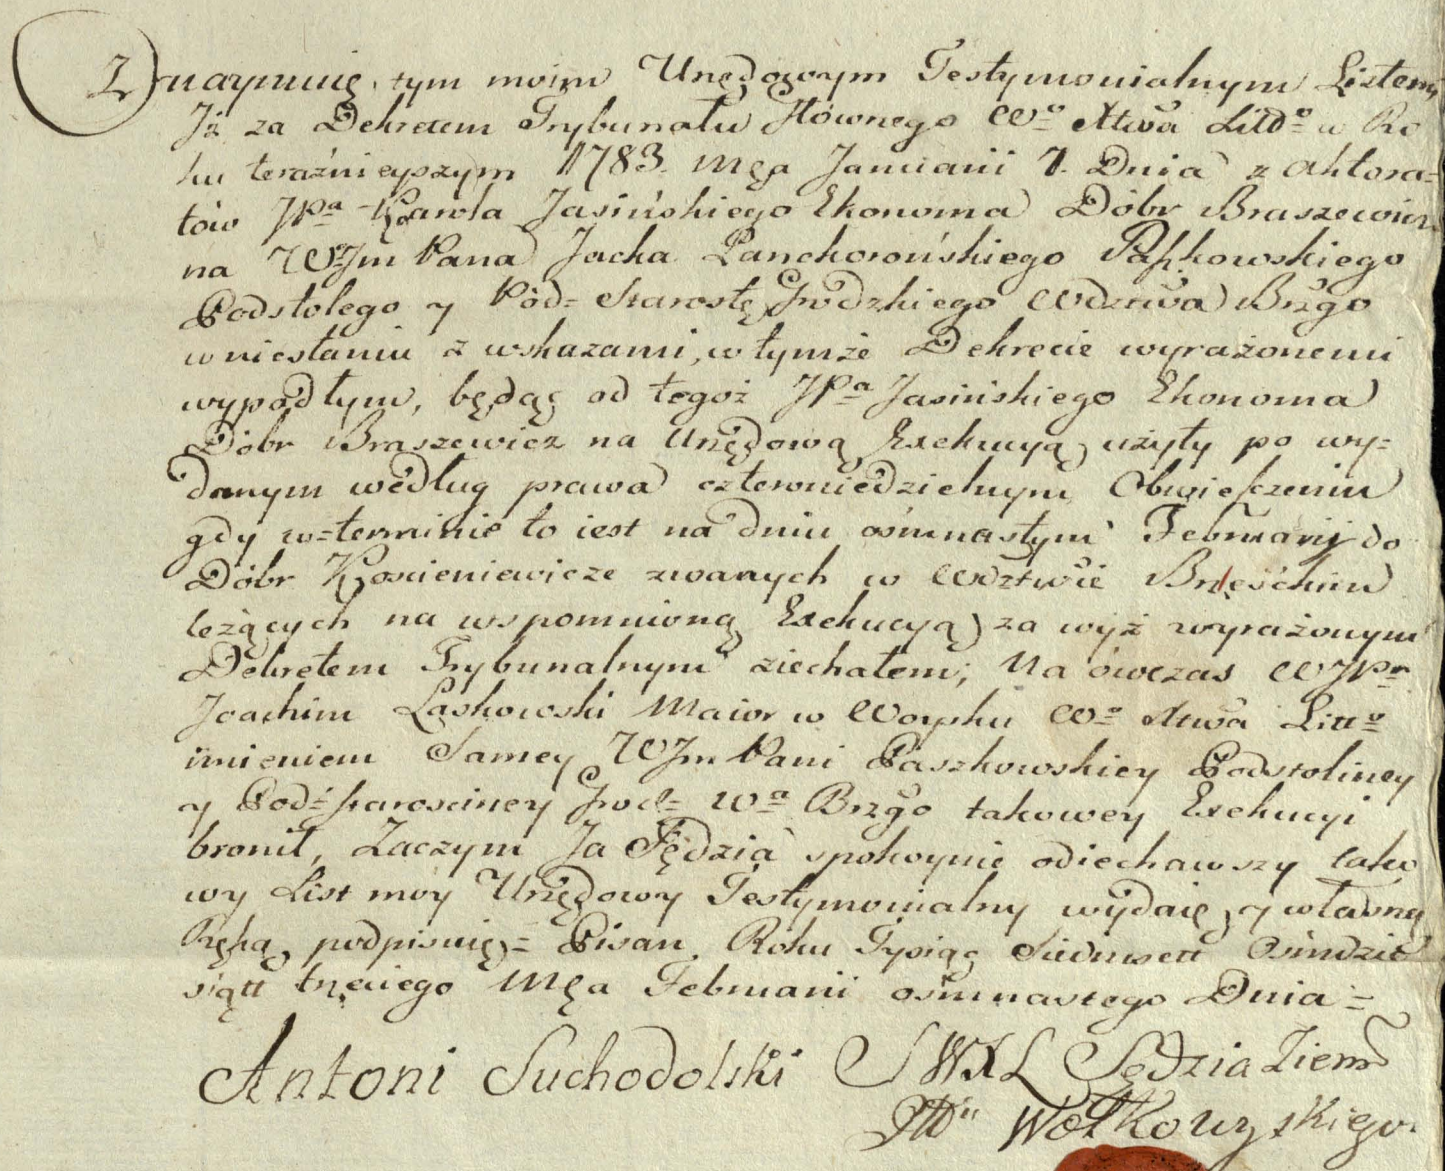 Znaymuię tym moim Urzędowym Testymonialnym Listem,
Jż za Dekretem Trybunału Głównego Wo Xtwa Littdo w Ro
ku teraźnieyszym 1783. Męa Januarii 7. Dnia z Aktora=
tów JPa Karola Jasińskiego Ekonoma Dóbr Braszewicz
na WJm Pana Jacka Lanckorońskiego Paszkowskiego
Podstolego y Pod= Starostę Grodzkiego Wdztwa Brzgo
w niestaniu z wskazami, w tymże Dekrecie wyrażonemi
wypadłym, będąc od tegoż JPa Jasińskiego Ekonoma
Dóbr Braszewicz na Urzędową Exekucyą użyty po wy=
danym według prawa czteroniedzielnym Obwieszczeniu
gdy w=terminie to iest na dniu ośmnastym Februarij do
Dóbr Kościeniewicze zwanych w Wdztwie Brześckim
leżących na wspomnioną Exekucyą za wyż wyrażonym
Dekretem Trybunalnym ziechałem; Na ówczas WJPan
Joachim Laskowski Maior w Woysku Wo Xtwa Litto
imieniem Samey WJm Pani Paszkowskiey Podstoliney
y Pod=Starosciney Grod= Wa Brzgo takowey Exekucyi
bronił, Zaczym Ja Sędzia spokoynie odiechawszy tako
wy List móy Urzędowy Testymonialny wydaię, y własną
Ręką podpisuię= Pisan Roku Tysiąc Siedmsett Ośmdzie
siątt trzeciego Męa Februarii ośmnastego Dnia=
Antoni Suchodolski S W X L Sędzia Ziem
Pttu Wołkowyskiego.